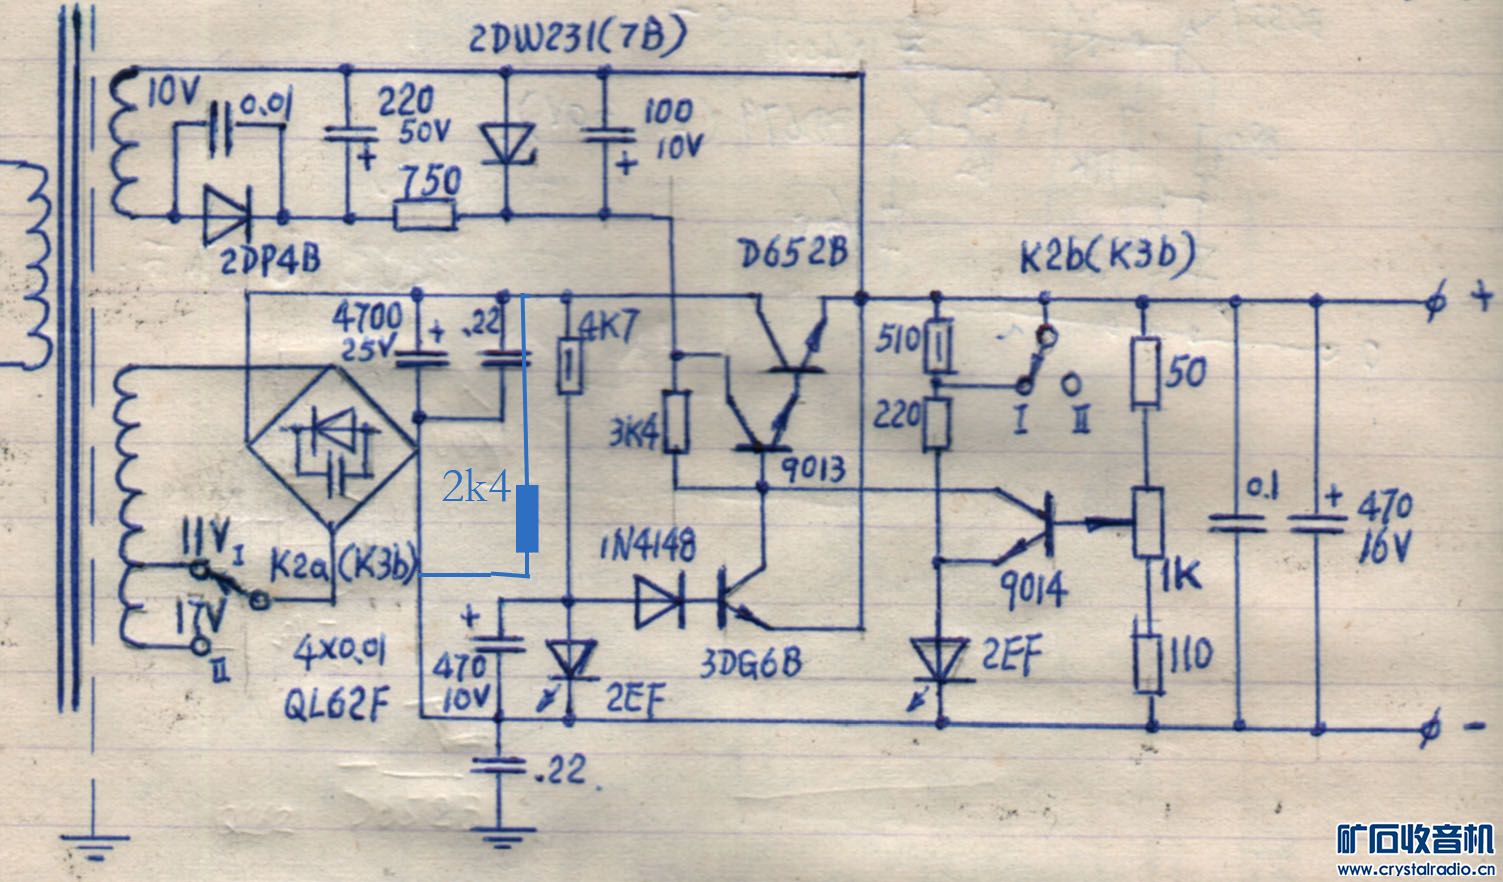 2DW231(7B)
10V
0.01
220
50V
+
100
10V
+
750
2DP4B
D652B
K2b(K3b)
+
4700
25V
+
.22
4K7
510
50
3K4
220
I
II
9013
2k4
0.1
+
470
16V
11V
I
K2a(K3b)
1N4148
9014
1K
17V
II
+
4X0.01
QL62F
470
10V
2EF
3DG6B
2EF
110
-
.22
矿石收音机
www.crystalradio.cn